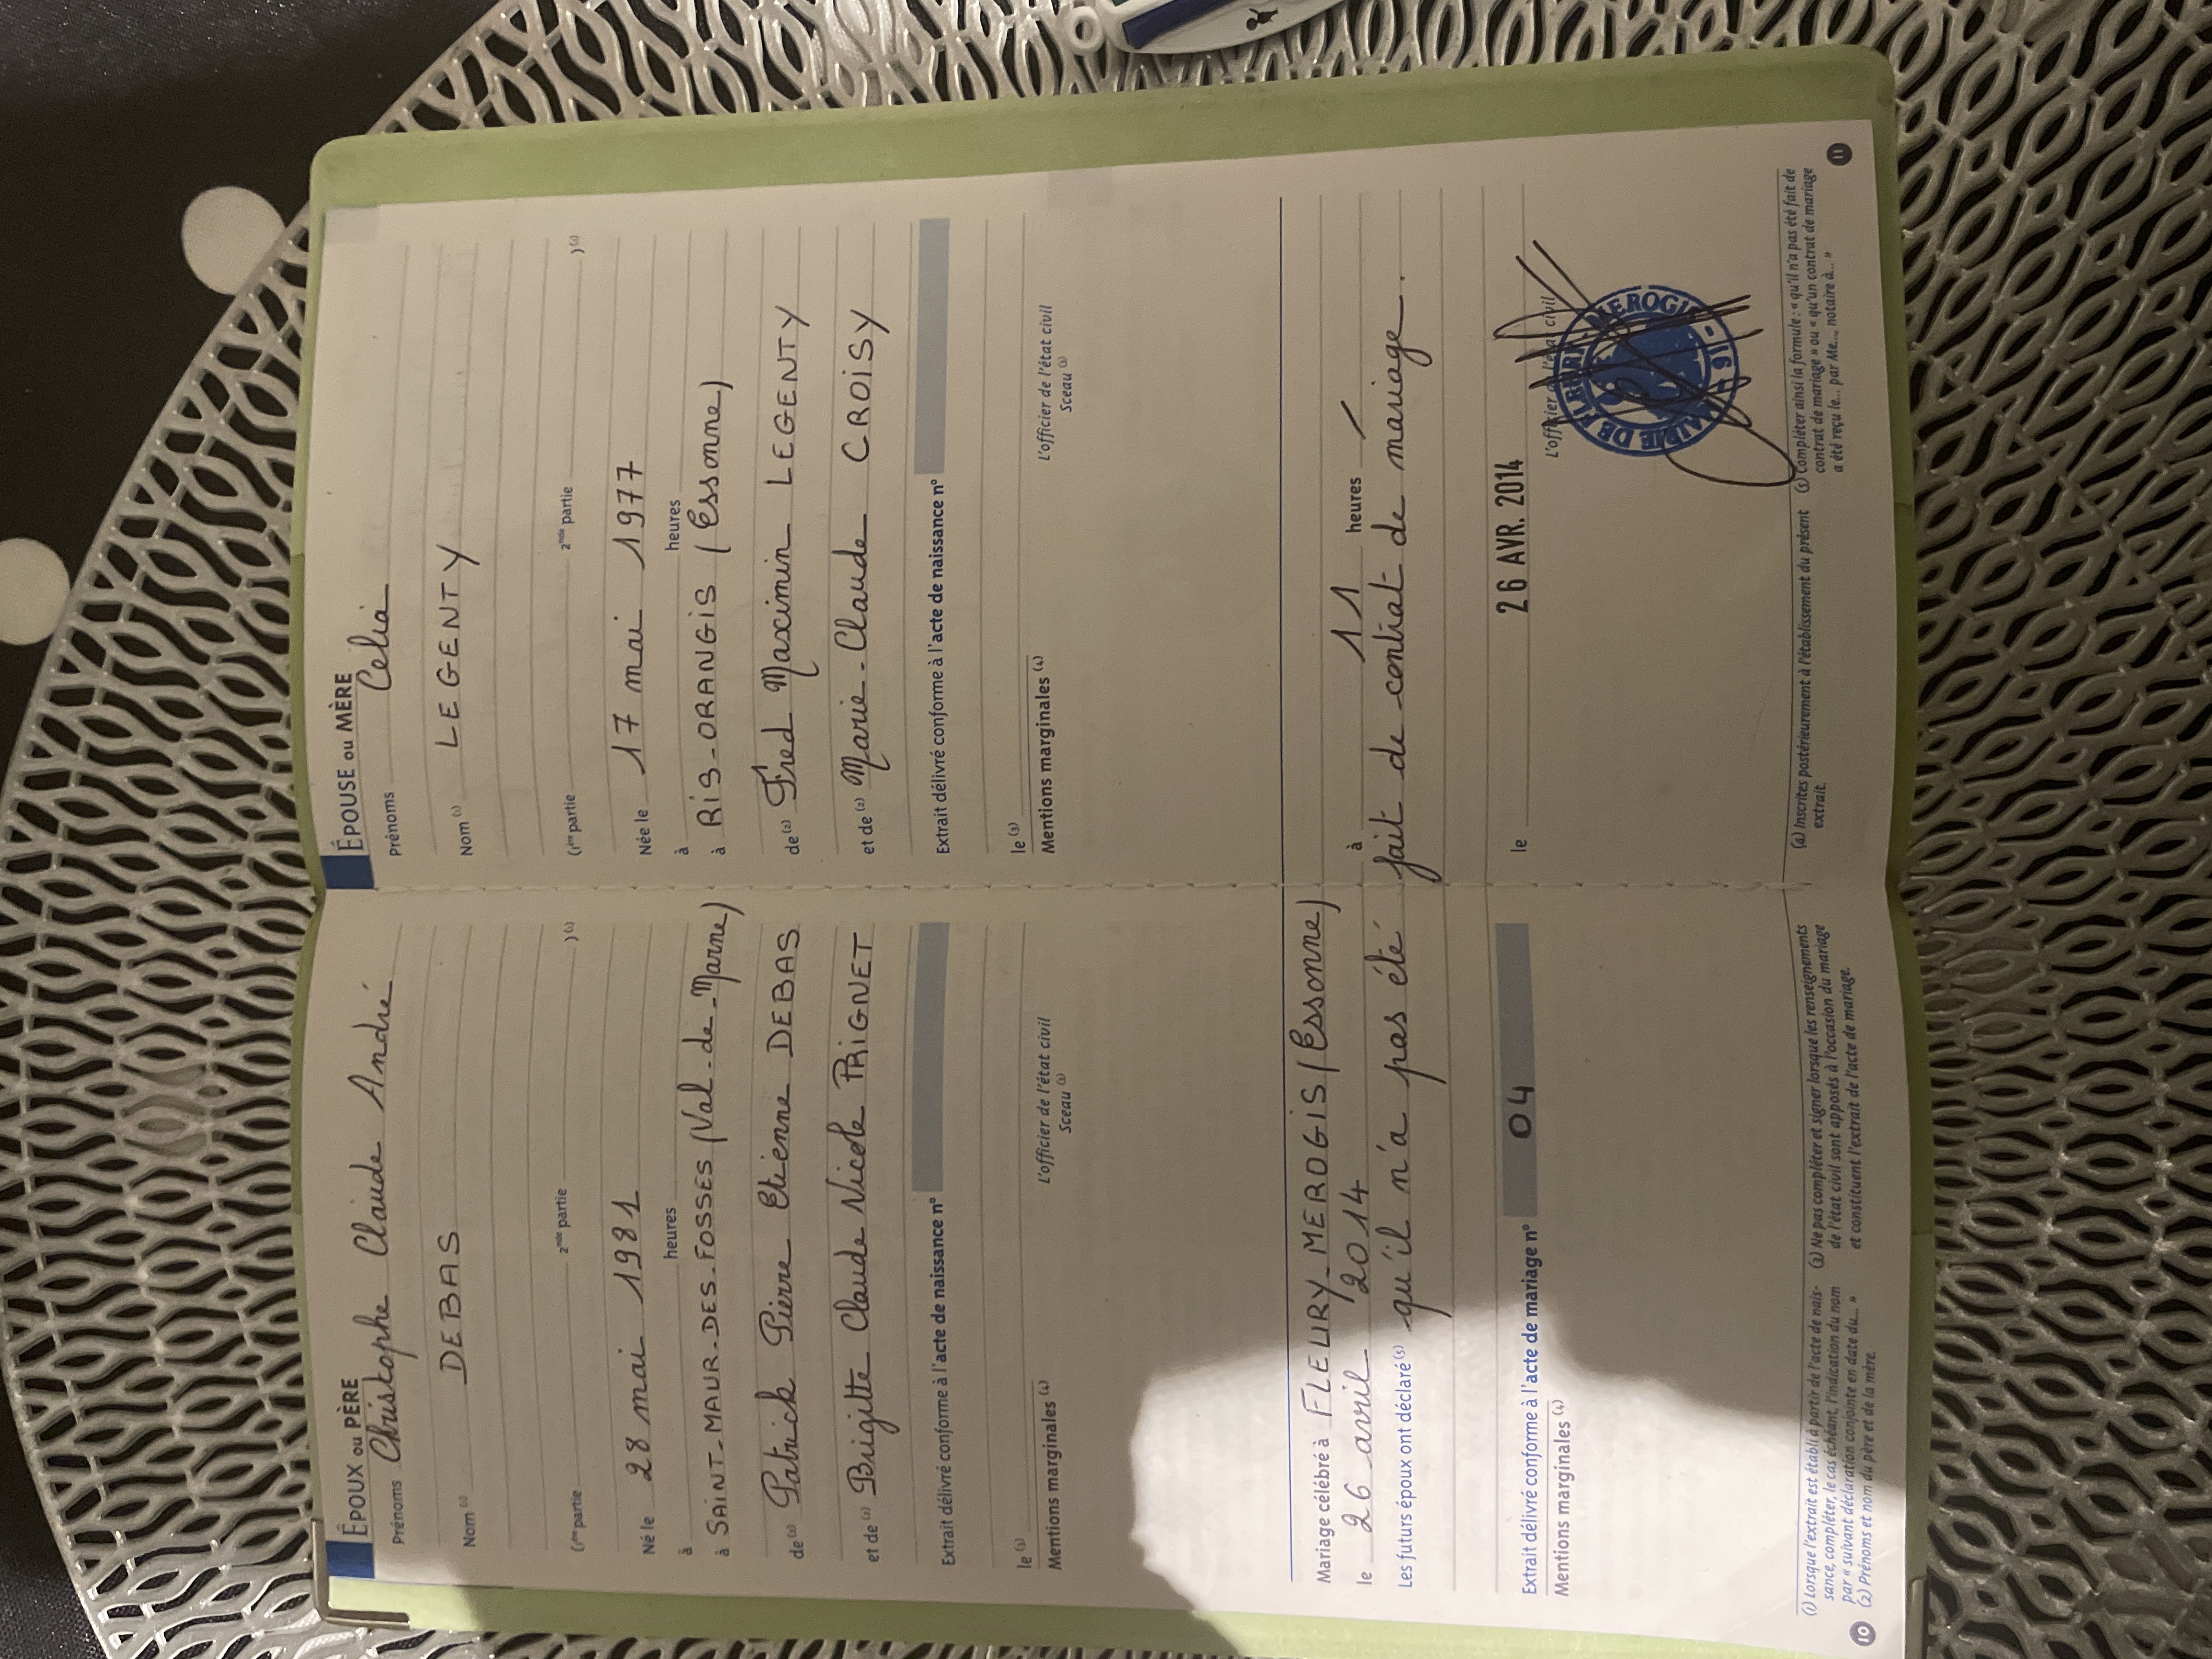 ÉPOUX ou PÈRE
Prénoms Christophe Claude André
Nom (1) DEBAS
(1ère partie 2nde partie )(1)
Né le 28 mai 1981
à heures
à SAINT-MAUR-DES-FOSSES (Val-de-Marne)
de (2) Patrick Pierre Etienne DEBAS
et de (2) Brigitte Claude Nicole PRIGNET
Extrait délivré conforme à l'acte de naissance n°
le (3)
L'officier de l'état civil
Sceau (3)
Mentions marginales (4)
ÉPOUSE ou MÈRE
Prénoms Celia
Nom (1) LEGENTY
(1ère partie 2nde partie )(1)
Née le 17 mai 1977
à heures
à RIS-ORANGIS (Essonne)
de (2) Fred Maximin LEGENTY
et de (2) Marie-Claude CROISY
Extrait délivré conforme à l'acte de naissance n°
le (3)
L'officier de l'état civil
Sceau (3)
Mentions marginales (4)
Mariage célébré à FLEURY-MEROGIS (Essonne)
le 26 avril 2014 à 11 heures /
Les futurs époux ont déclaré (5) qu'il n'a pas été fait de contrat de mariage.
Extrait délivré conforme à l'acte de mariage n° 04 le 26 AVR. 2014
Mentions marginales (4)
L'officier de l'état civil
MAIRIE DE FLEURY-MEROGIS - 91 -
(1) Lorsque l'extrait est établi à partir de l'acte de nais-
sance, compléter, le cas échéant, l'indication du nom
par « suivant déclaration conjointe en date du... »
(2) Prénoms et nom du père et de la mère.
(3) Ne pas compléter et signer lorsque les renseignements
de l'état civil sont apposés à l'occasion du mariage
et constituent l'extrait de l'acte de mariage.
10
(4) Inscrites postérieurement à l'établissement du présent
extrait.
(5) Compléter ainsi la formule : « qu'il n'a pas été fait de
contrat de mariage » ou « qu'un contrat de mariage
a été reçu le... par Me... notaire à... »
11